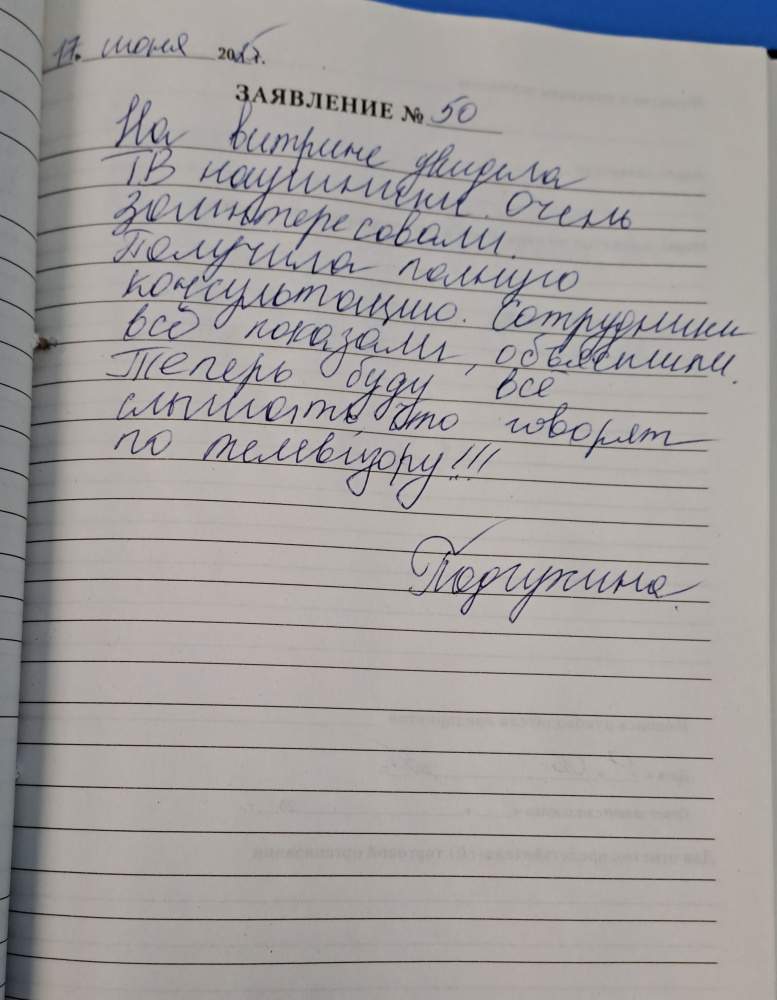 17. июня 2017.
ЗАЯВЛЕНИЕ № 50
На витрине увидела
ТВ наушники. Очень
заинтересовали.
Получила полную
консультацию. Сотрудники
всё показали, объяснили.
Теперь буду всё
слышать, что говорят
по телевизору!!!
Подгужина